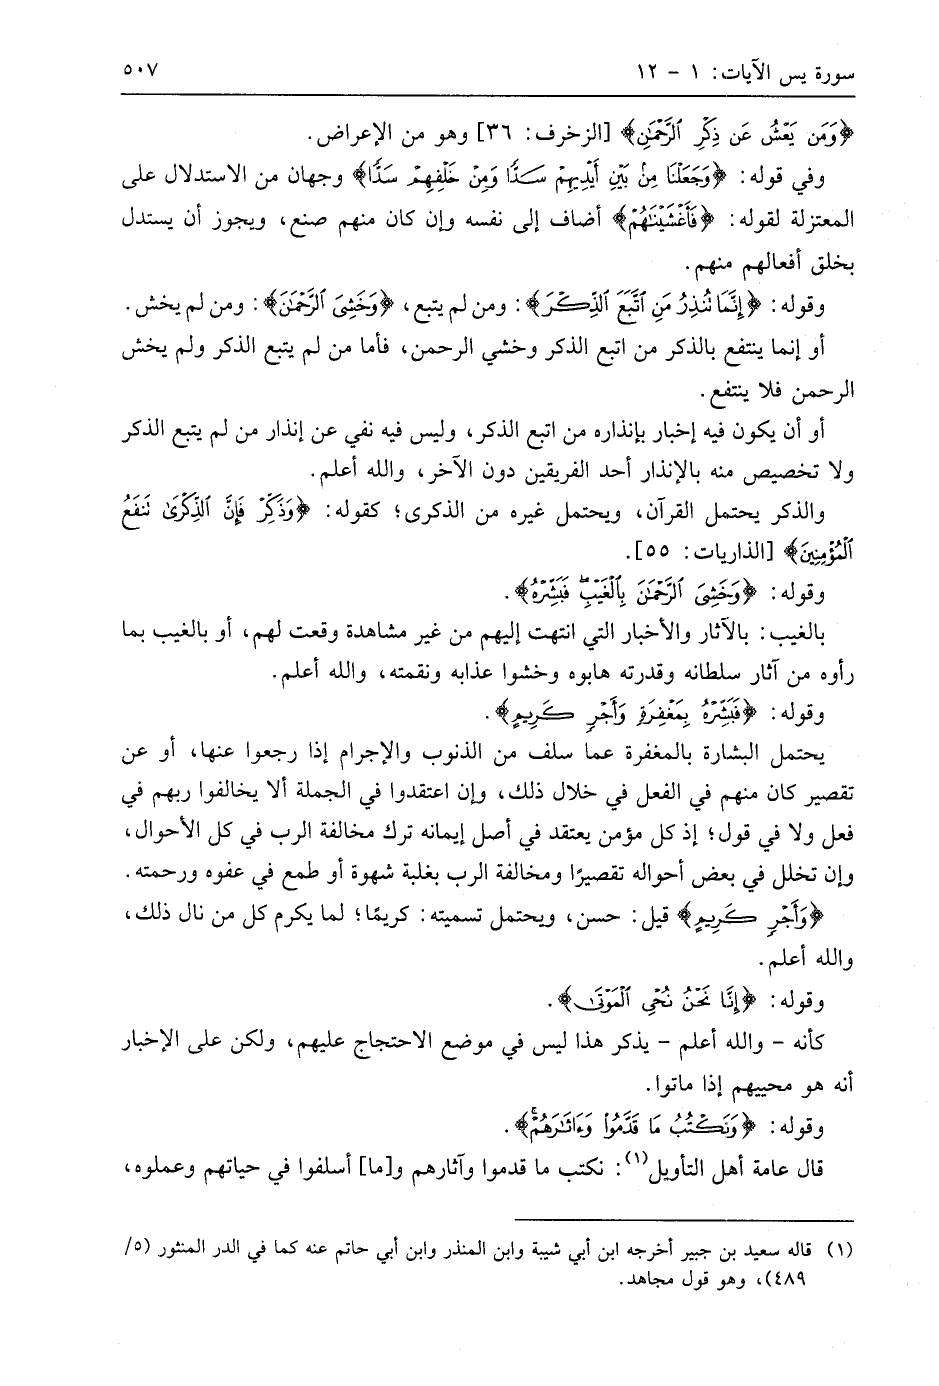 سورة يس الآيات: ١ - ١٢
٥٠٧
﴿وَمَن يَعْشُ عَن ذِكْرِ ٱلرَّحْمَٰنِ﴾ [الزخرف: ٣٦] وهو من الإعراض.
وفي قوله: ﴿وَجَعَلْنَا مِنۢ بَيْنِ أَيْدِيهِمْ سَكدًّا وَمِنْ خَلْفِهِمْ سَدًّا﴾ وجهان من الاستدلال على
المعتزلة لقوله: ﴿فَأَغْشَيْنَٰهُمْ﴾ أضاف إلى نفسه وإن كان منهم صنع، ويجوز أن يستدل
بخلق أفعالهم منهم.
وقوله: ﴿إِنَّمَا تُنذِرُ مَنِ ٱتَّبَعَ ٱلذِّكْرَ﴾: ومن لم يتبع، ﴿وَخَشِيَ ٱلرَّحْمَٰنَ﴾: ومن لم يخش.
أو إنما ينتفع بالذكر من اتبع الذكر وخشي الرحمن، فأما من لم يتبع الذكر ولم يخش
الرحمن فلا ينتفع.
أو أن يكون فيه إخبار بإنذاره من اتبع الذكر، وليس فيه نفي عن إنذار من لم يتبع الذكر
ولا تخصيص منه بالإنذار أحد الفريقين دون الآخر، والله أعلم.
والذكر يحتمل القرآن، ويحتمل غيره من الذكرى؛ كقوله: ﴿وَذَكِّرْ فَإِنَّ ٱلذِّكْرَىٰ تَنفَعُ
ٱلْمُؤْمِنِينَ﴾ [الذاريات: ٥٥].
وقوله: ﴿وَخَشِيَ ٱلرَّحْمَٰنَ بِٱلْغَيْبِۖ فَبَشِّرْهُ﴾.
بالغيب: بالآثار والأخبار التي انتهت إليهم من غير مشاهدة وقعت لهم، أو بالغيب بما
رأوه من آثار سلطانه وقدرته هابوه وخشوا عذابه ونقمته، والله أعلم.
وقوله: ﴿فَبَشِّرْهُ بِمَغْفِرَةٍ وَأَجْرٍ كَرِيمٍ﴾.
يحتمل البشارة بالمغفرة عما سلف من الذنوب والإجرام إذا رجعوا عنها، أو عن
تقصير كان منهم في الفعل في خلال ذلك، وإن اعتقدوا في الجملة ألا يخالفوا ربهم في
فعل ولا في قول؛ إذ كل مؤمن يعتقد في أصل إيمانه ترك مخالفة الرب في كل الأحوال،
وإن تخلل في بعض أحواله تقصيرًا ومخالفة الرب بغلبة شهوة أو طمع في عفوه ورحمته.
﴿وَأَجْرٍ كَرِيمٍ﴾ قيل: حسن، ويحتمل تسميته: كريمًا؛ لما يكرم كل من نال ذلك،
والله أعلم.
وقوله: ﴿إِنَّا نَحْنُ نُحْيِ ٱلْمَوْتَىٰ﴾.
كأنه - والله أعلم - يذكر هذا ليس في موضع الاحتجاج عليهم، ولكن على الإخبار
أنه هو محييهم إذا ماتوا.
وقوله: ﴿وَنَكْتُبُ مَا قَدَّمُواْ وَءَاثَٰرَهُمْۚ﴾.
قال عامة أهل التأويل(١): نكتب ما قدموا وآثارهم و[ما] أسلفوا في حياتهم وعملوه،
(١) قاله سعيد بن جبير أخرجه ابن أبي شيبة وابن المنذر وابن أبي حاتم عنه كما في الدر المنثور (٥/
٤٨٩)، وهو قول مجاهد.